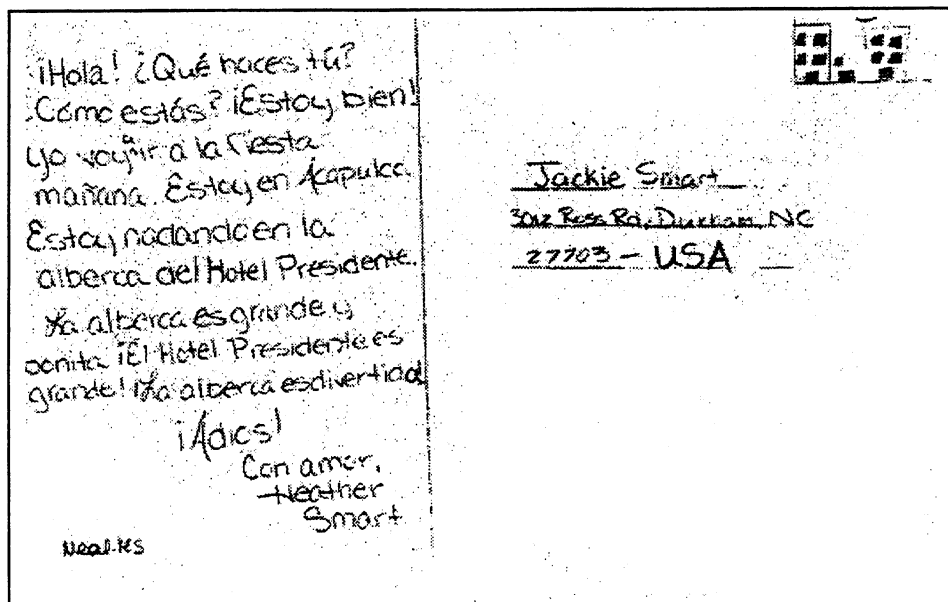 ¡Hola! ¿Qué haces tú?
Cómo estás? ¡Estoy bien!
Yo voy a ir a la fiesta
mañana. Estoy en Acapulco.
Estoy nadando en la
alberca del Hotel Presidente.
La alberca es grande y
bonita. ¡El Hotel Presidente es
grande! ¡La alberca es divertida!
¡Adios!
Con amor,
Heather
Smart
Neal MS
Jackie Smart
Ross Rd, Durham NC
27703 - USA